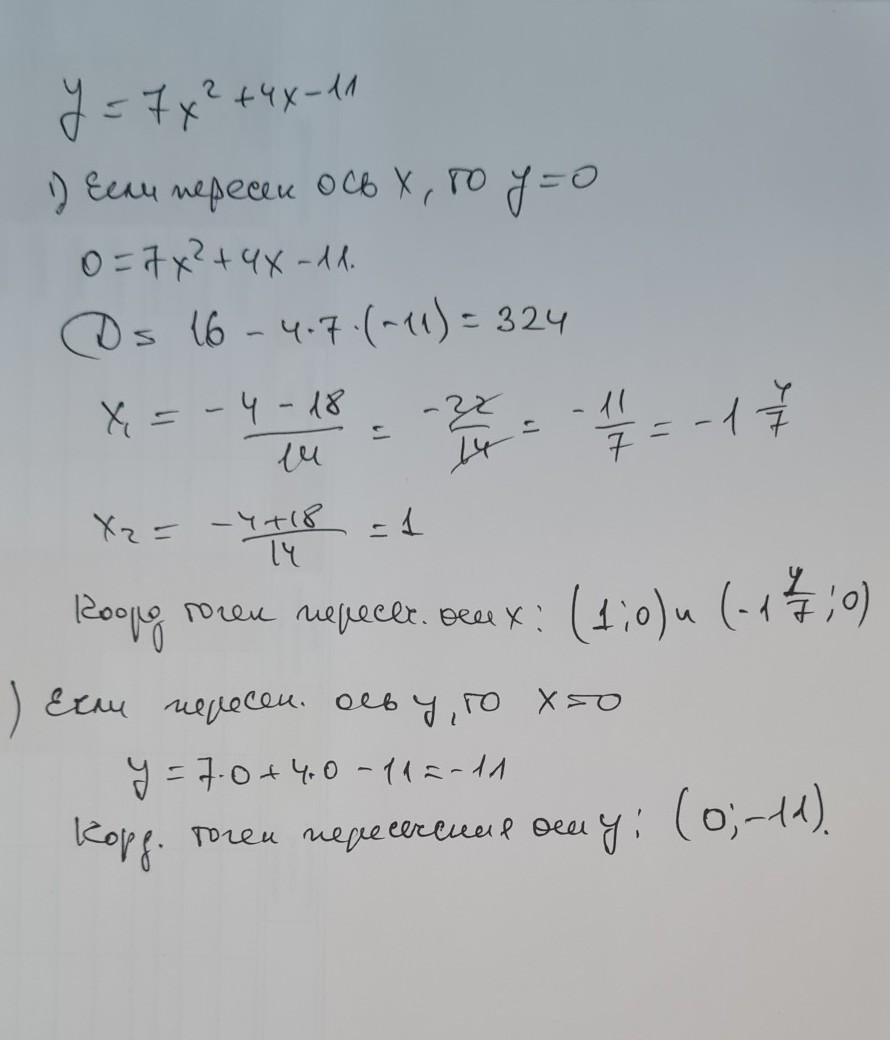 y = 7x² + 4x - 11
1) Если пересек ось x, то y = 0
0 = 7x² + 4x - 11.
D = 16 - 4·7·(-11) = 324
x₁ = (-4 - 18)/14 = -22/14 = -11/7 = -1 4/7
x₂ = (-4 + 18)/14 = 1
Коорд точек пересеч. оси x: (1; 0) и (-1 4/7; 0)
) Если пересек. ось y, то x = 0
y = 7·0 + 4·0 - 11 = -11
Корд. точек пересечения оси y: (0; -11).